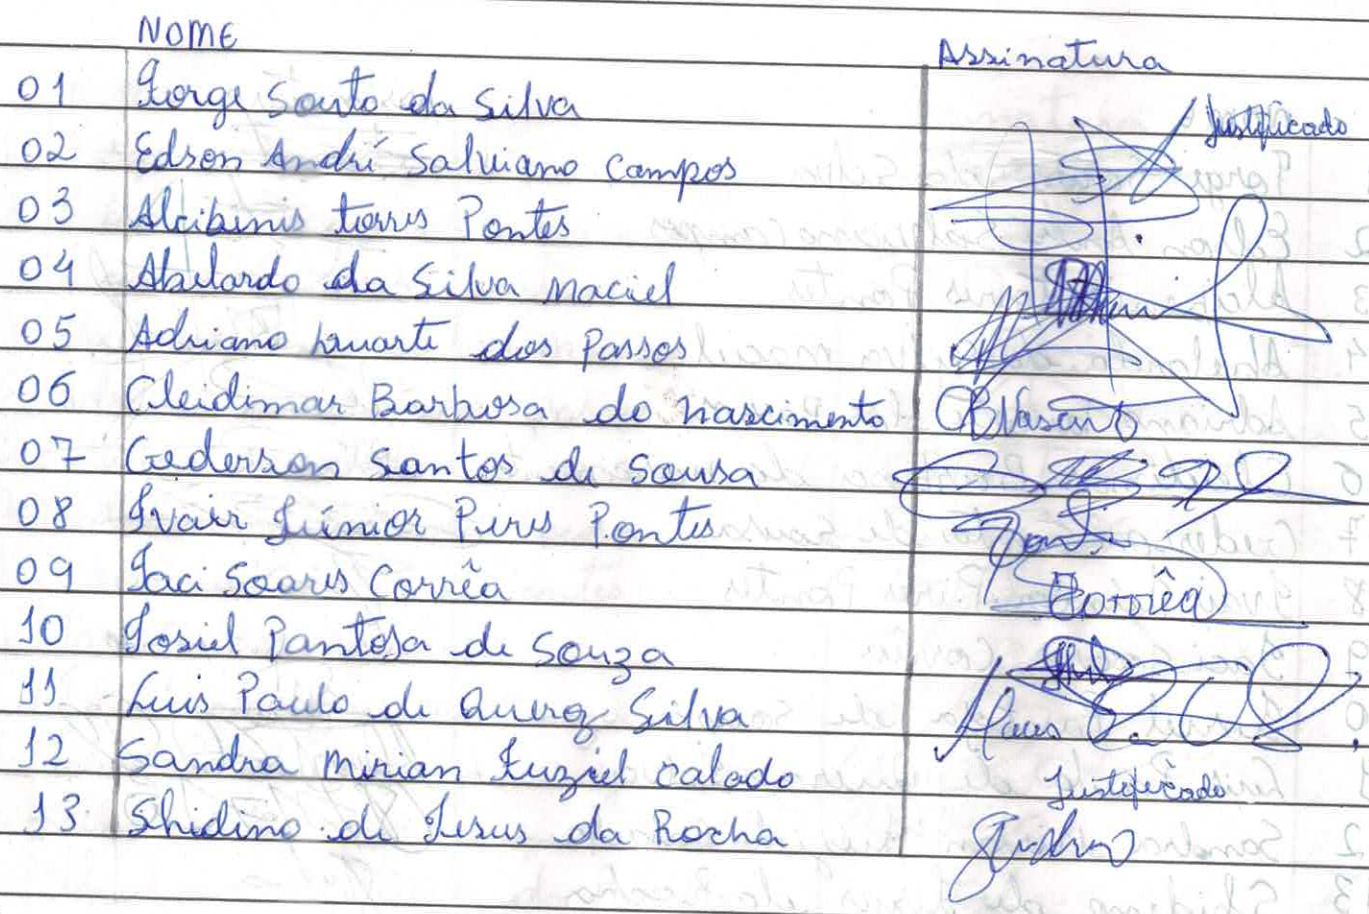 NOME Assinatura
01 Jorge Souto da Silva Justificado
02 Edson André Salviano Campos
03 Alcibinis torres Pontes
04 Abelardo da Silva Maciel
05 Adriano Duarte dos Passos
06 Cleidimar Barbosa do nascimento CBNascimento
07 Gederson Santos de Sousa
08 Ivair Júnior Pires Pontes
09 Jaci Soares Corrêa Corrêa
10 Josiel Pantoja de Souza
11 Luis Paulo de Queroz Silva
12 Sandra Mirian Calado Justificado
13 Shidino de Jesus da Rocha